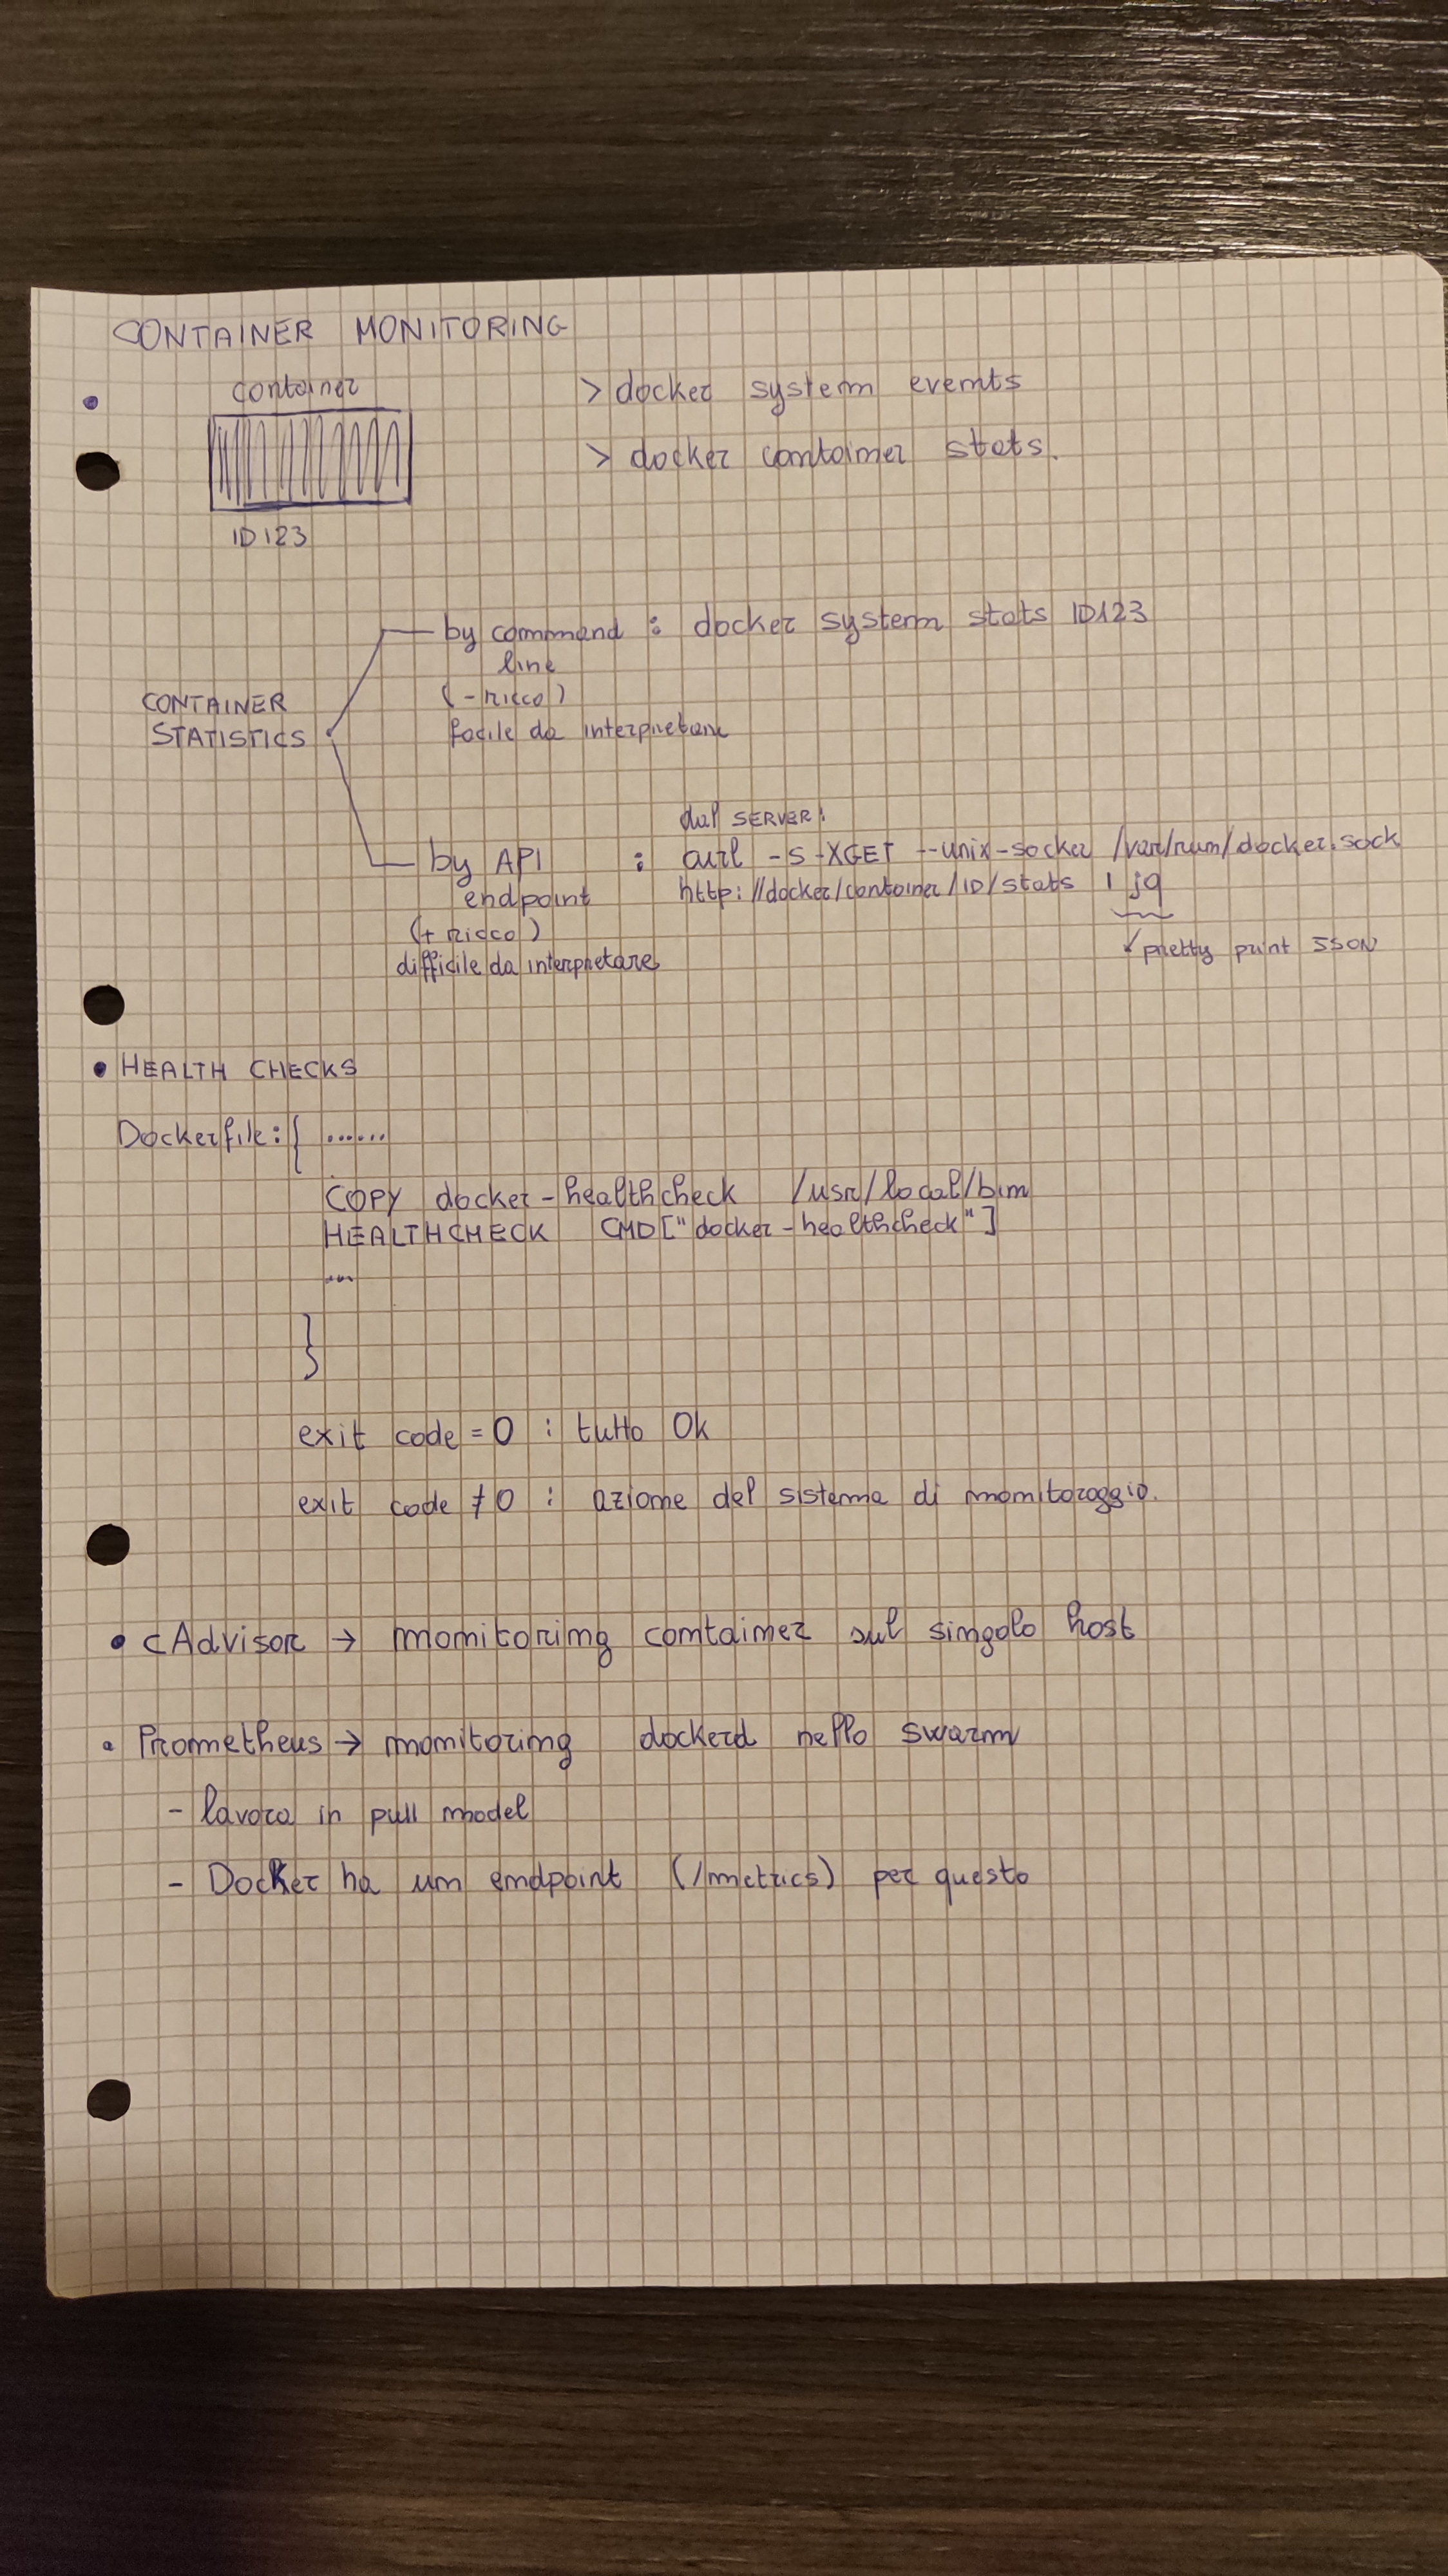 CONTAINER MONITORING
container
> docker system events
> docker container stats.
ID123
by command : docker system stats ID123
line
(- ricco)
facile da interpretare
CONTAINER
STATISTICS
dal SERVER:
by API : curl -s -XGET --unix-socket /var/run/docker.sock
endpoint http://docker/container/ID/stats | jq
(+ ricco)
pretty print JSON
difficile da interpretare
• HEALTH CHECKS
Dockerfile: { ......
COPY docker-healthcheck /usr/local/bin
HEALTHCHECK CMD["docker-healthcheck"]
...
}
exit code = 0 : tutto Ok
exit code ≠ 0 : azione del sistema di monitoraggio.
• cAdvisor → monitoring container sul singolo host
• Prometheus → monitoring dockerd nello swarm
- lavora in pull model
- Docker ha un endpoint (/metrics) per questo